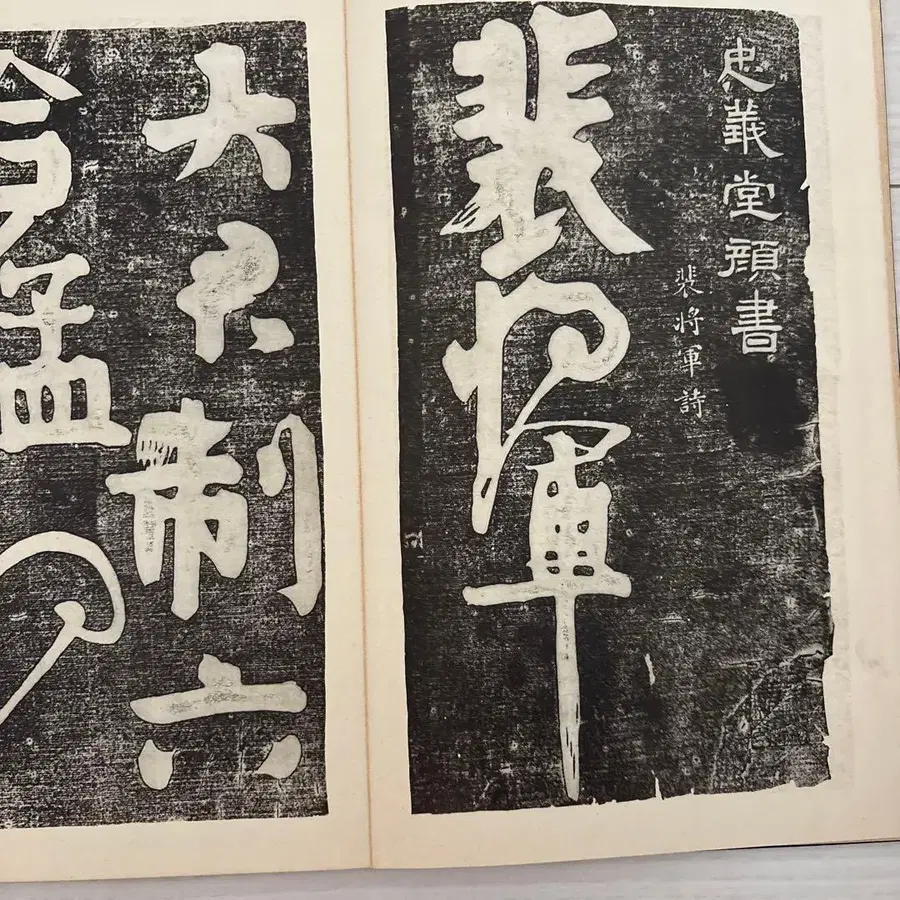 忠義堂顔書
裴將軍詩
裴將軍
大君制六
合猛將